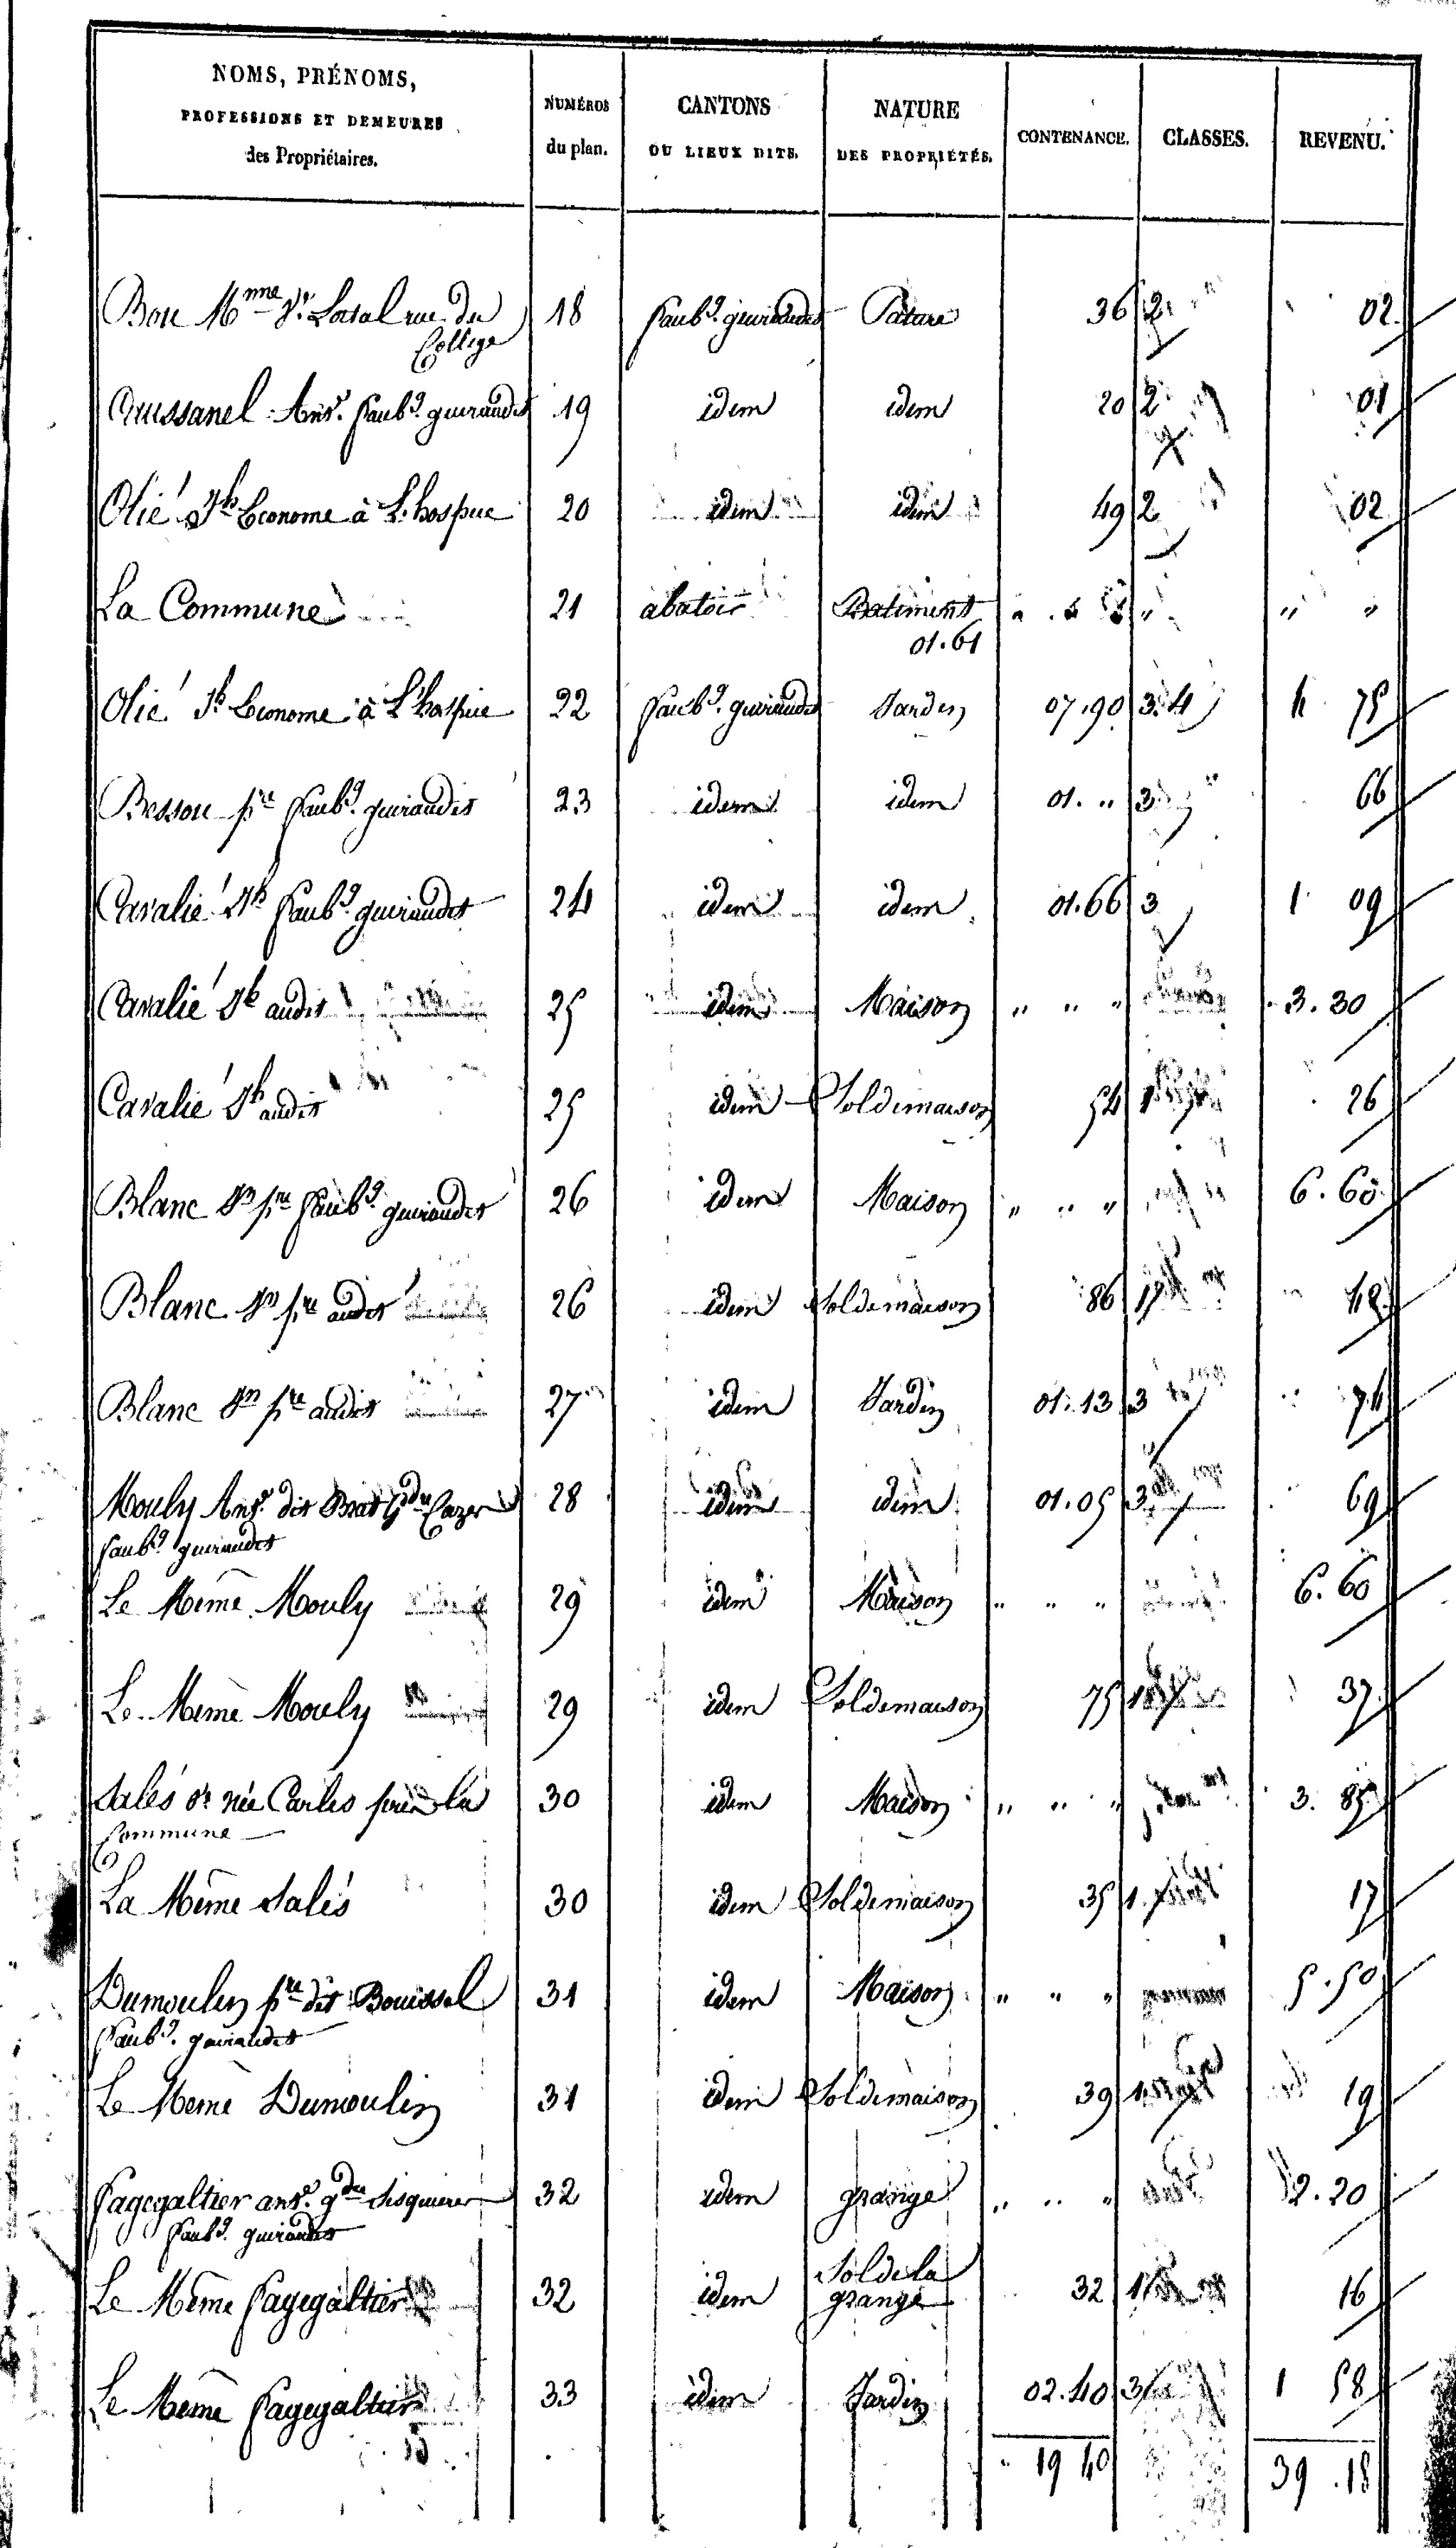 NOMS, PRÉNOMS,
PROFESSIONS ET DEMEURES
des Propriétaires.
NUMÉROS
du plan.
CANTONS
OU LIEUX DITS.
NATURE
DES PROPRIÉTÉS.
CONTENANCE.
CLASSES.
REVENU.
Bou M^nne V^e Laval rue du 18 faub^g. guiraudet Pature 36 2 02
College
Crussanel Ant^e. faub^g. guiraudet 19 idem idem 20 2 01
Olié J^h Econome à L'hospice 20 idem idem 49 2 02
La Commune 21 abatoir Batiment " " " " " "
01.61
Olié J^h Econome à L'hospice 22 faub^g. guiraudet Jardin 07.90 3.4 4 75
Besson p^re faub^g. guiraudet 23 idem idem 01. " 3 66
Cavalié J^h faub^g. guiraudet 24 idem idem 01.66 3 1 09
Cavalié J^h audit 25 idem Maison " " " 3.30
Cavalié J^h audit 25 idem Sol de maison 54 1 26
Blanc J^n p^re faub^g guiraudet 26 idem Maison " " " 6.60
Blanc J^n p^re audit 26 idem Sol de maison 86 1 42
Blanc J^n p^re audit 27 idem Jardin 01.13 3 74
Mouly Ant^e dit Brat g^dre Cazer 28 idem idem 01.05 3 69
faub^g guiraudet
Le Même Mouly 29 idem Maison " " " 6.60
Le Même Mouly 29 idem Sol de maison 75 1 37
Salés V^e née Carles par la 30 idem Maison " " " 3.85
Commune
La Même Salés 30 idem Sol de maison 35 1 17
Dumoulin p^re dit Bouissel 31 idem Maison " " " 5.50
faub^g. guiraudet
Le Même Dumoulin 31 idem Sol de maison 39 1 19
Fagegaltier ant^e. g^dre Sisquierer 32 idem grange " " " 2.20
faub^g. guiraudet
Le Même Fagegaltier 32 idem Sol de la 32 1 16
grange
Le Même Fagegaltier 33 idem Jardin 02.40 3 1 58
19 40 39.18